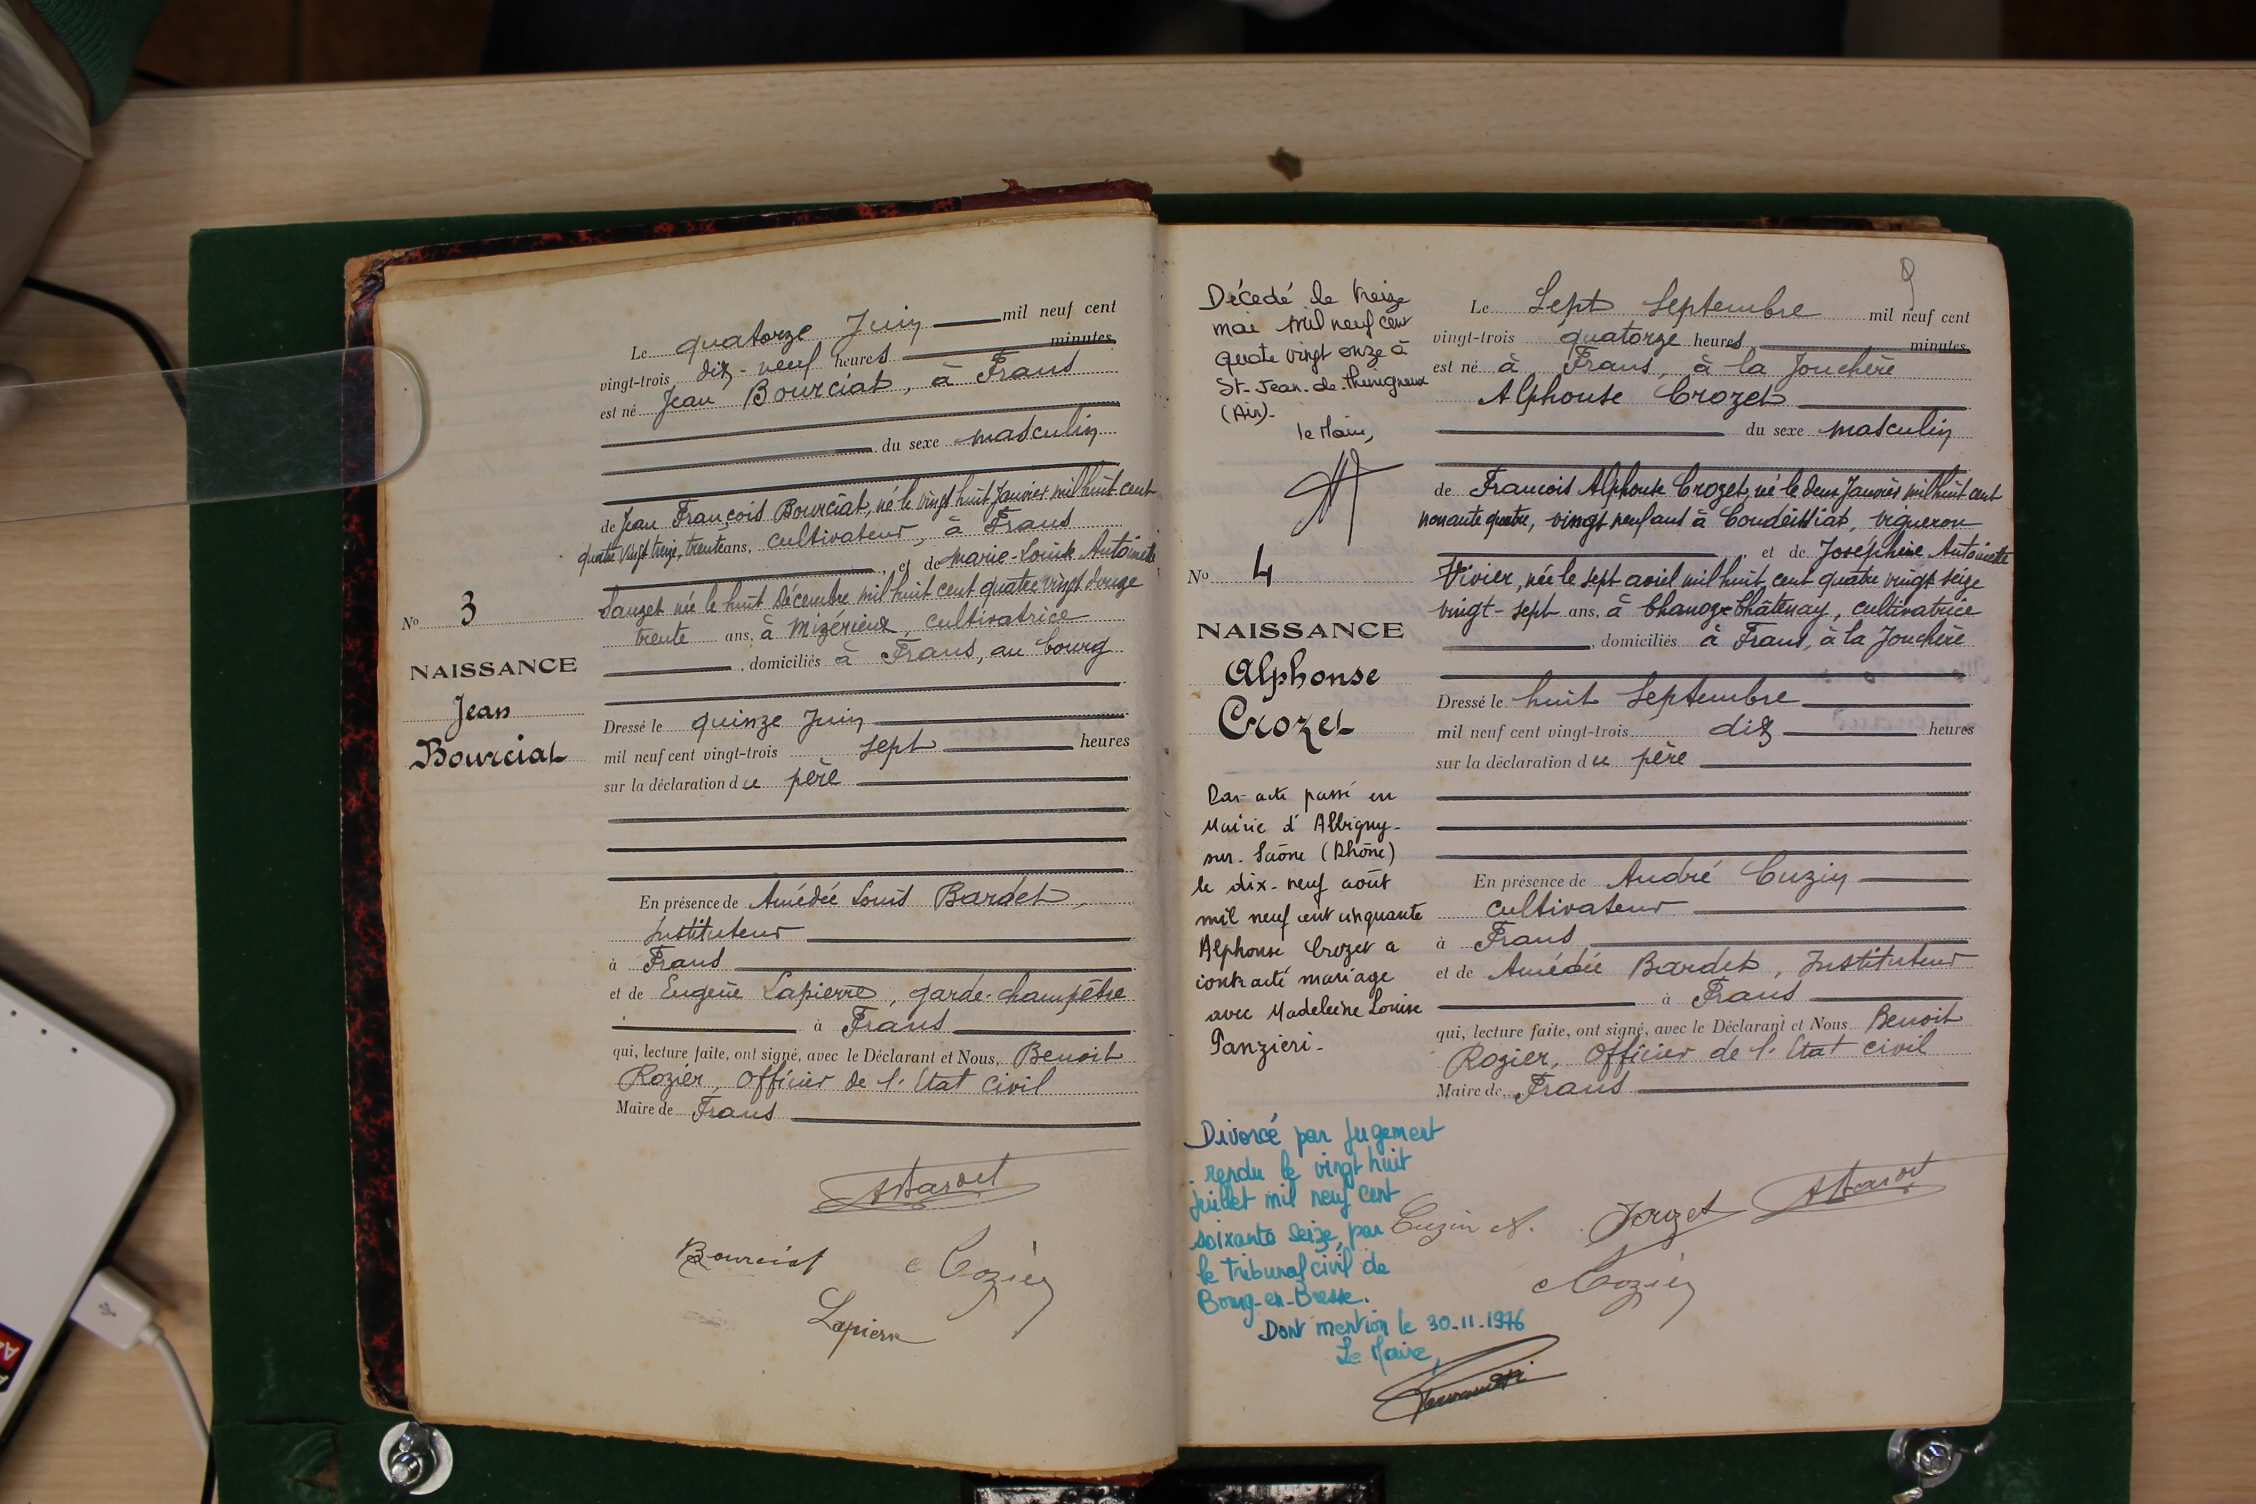 Le quatorze Juin mil neuf cent
vingt-trois, dix-neuf heures minutes
est né Jean Bourciat, à Frans
du sexe masculin
de Jean François Bourciat, né le vingt huit Janvier mil huit cent
quatre vingt treize, trente ans, cultivateur, à Frans
, et de Marie-Louise Antoinette
Sauzet née le huit Décembre mil huit cent quatre vingt douze
trente ans, à Mizérieux, cultivatrice
, domiciliés à Frans, au bourg
No 3
NAISSANCE
Jean
Bourciat
Dressé le quinze Juin
mil neuf cent vingt-trois sept heures
sur la déclaration du père
En présence de Amédée Louis Bardet,
Instituteur
à Frans
et de Eugène Lapierre, garde-champêtre
à Frans
qui, lecture faite, ont signé, avec le Déclarant et Nous, Benoit
Rozier, Officier de l'Etat civil
Maire de Frans
ABardet
Bourciat
Rozier
Lapierre
9
Décedé le treize
mai mil neuf cent
quate vingt onze à
St-Jean-de-Thurigneux
(Ain)-
le Maire,
No 4
NAISSANCE
Alphonse
Crozet
Par acte passé en
Mairie d'Albigny-
sur-Saône (Rhône)
le dix-neuf août
mil neuf cent cinquante
Alphonse Crozet a
contracté mariage
avec Madeleine Louise
Panzieri-
Divorcé par jugement
rendu le vingt huit
juillet mil neuf cent
soixante seize, par
le tribunal civil de
Bourg-en-Bresse.
Dont mention le 30-11-1976
Le Maire,
Le Sept Septembre mil neuf cent
vingt-trois quatorze heures minutes
est né à Frans, à la Jonchère
Alphonse Crozet
du sexe masculin
de François Alphonse Crozet, né le deux Janvier mil huit cent
nonante quatre, vingt neuf ans à Condeissiat, vigneron
, et de Joséphine Antoinette
Vivier, née le sept avril mil huit cent quatre vingt seize
vingt-sept ans, à Chanoz-Châtenay, cultivatrice
, domiciliés à Frans, à la Jonchère
Dressé le huit Septembre
mil neuf cent vingt-trois dix heures
sur la déclaration du père
En présence de André Cuzin
cultivateur
à Frans
et de Amédée Bardet, Instituteur
à Frans
qui, lecture faite, ont signé, avec le Déclarant et Nous Benoit
Rozier, Officier de l'Etat civil
Maire de Frans
ABardet
Cuzin A.
Crozet
Rozier